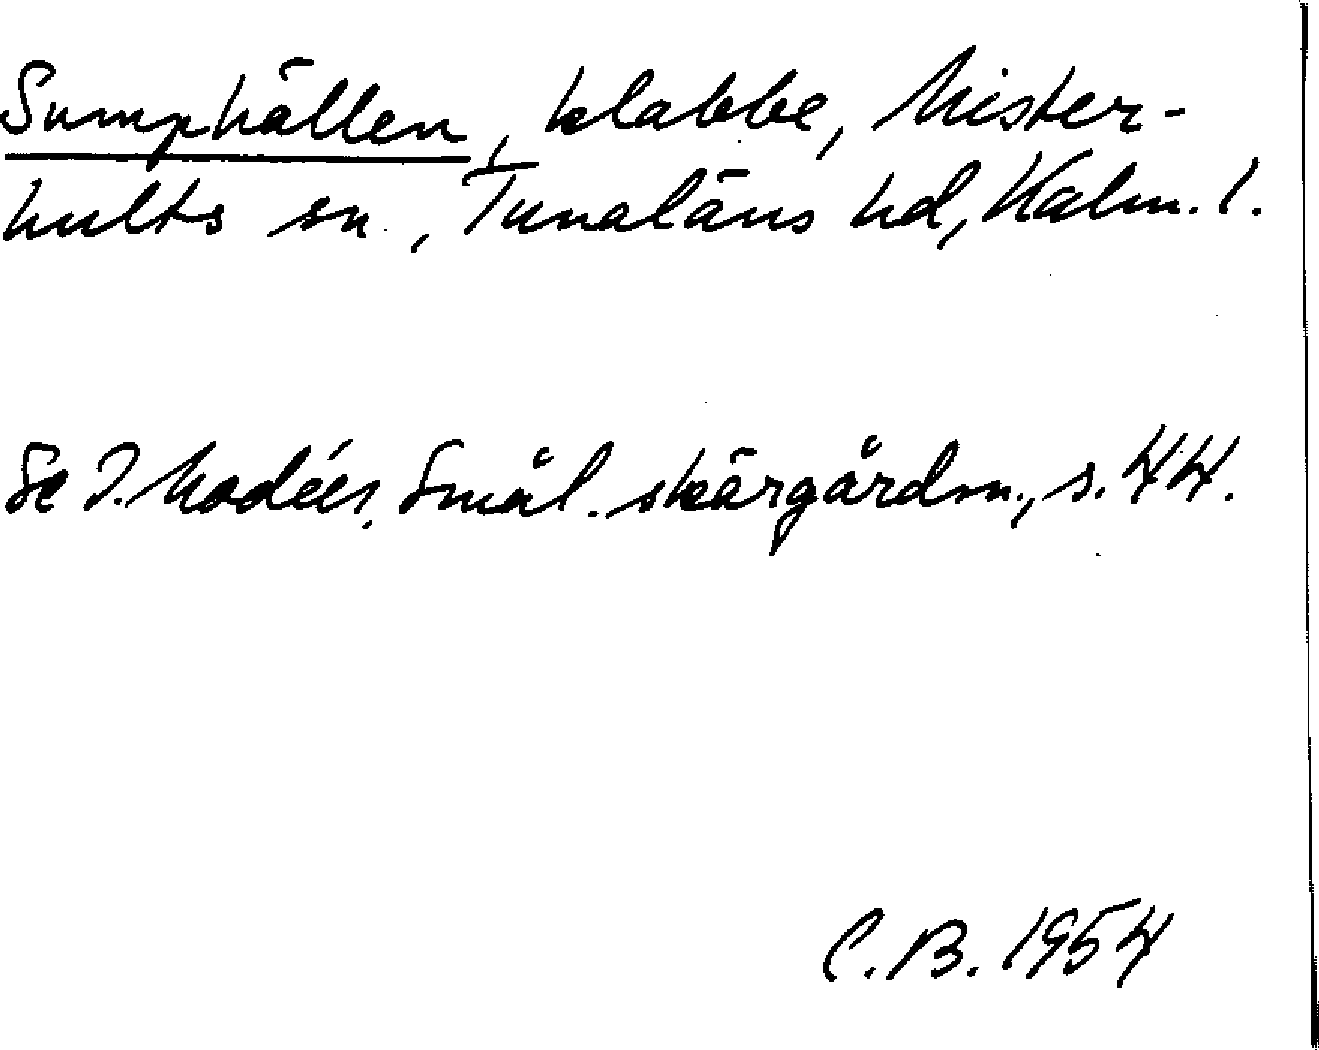 Sumphällen, klabbe, Mister-
hults sn., Tunaläns hd, Kalm. l.
Se I. Modéer, Smål. skärgårdsn., s. 44.
C.B. 1954